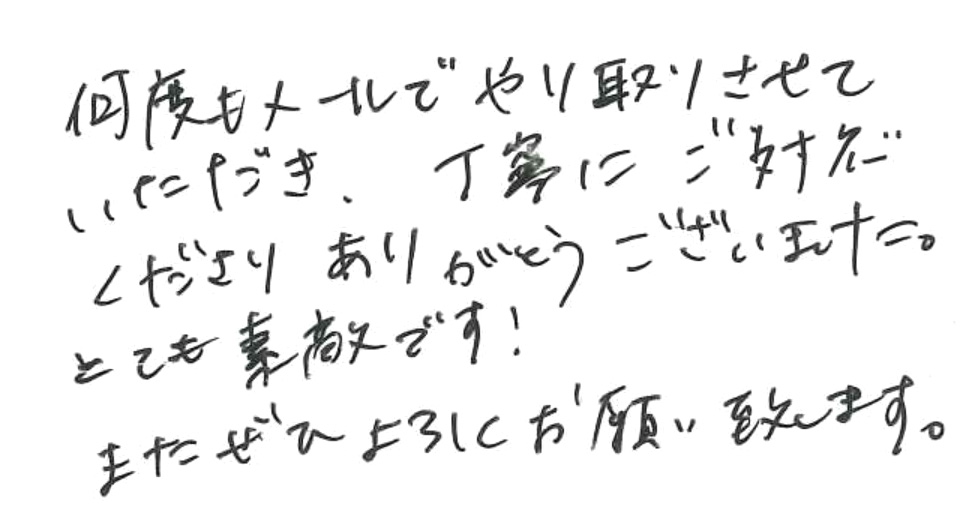 何度もメールでやり取りさせて
いただき、丁寧にご対応
くださりありがとうございました。
とても素敵です!
またぜひよろしくお願い致します。